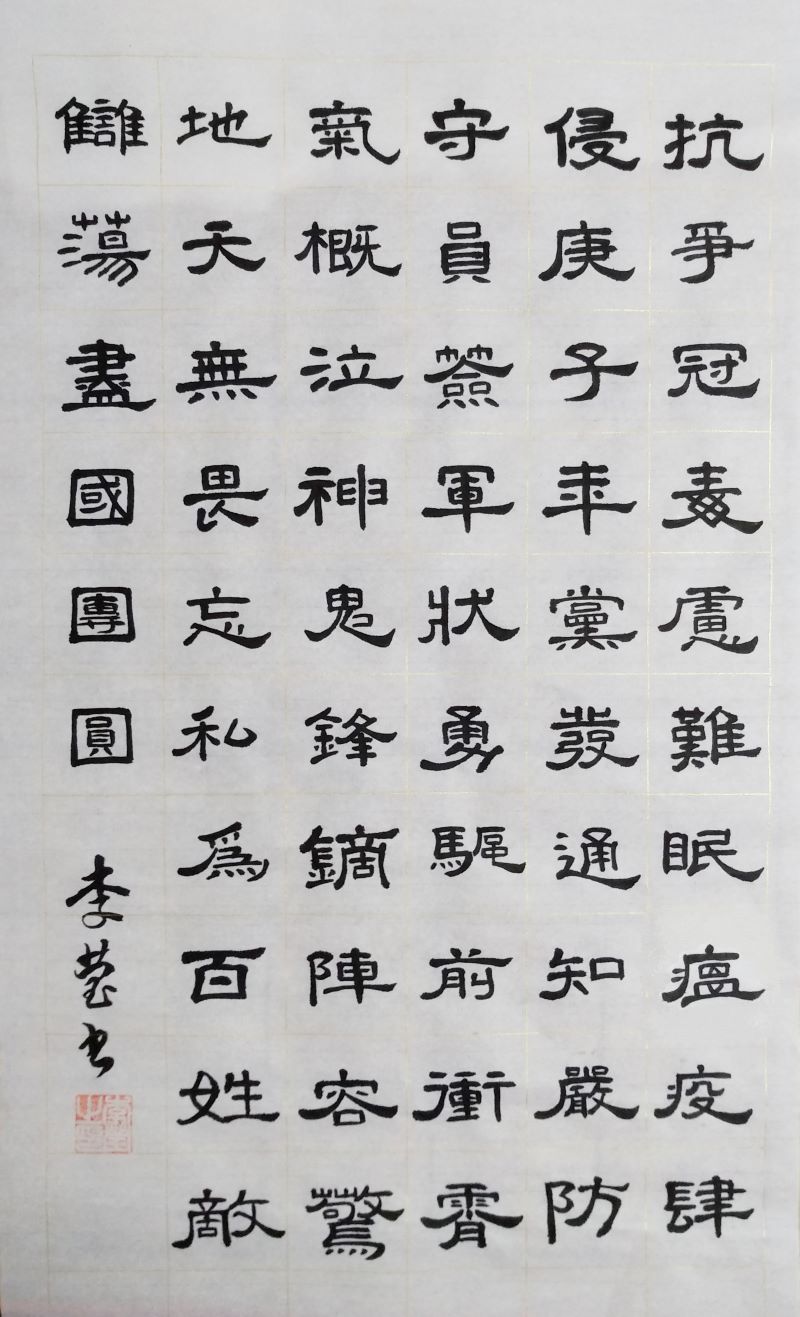 抗爭冠毒慮難眠瘟疫肆
侵庚子年黨發通知嚴防
守員簽軍狀勇驅前衝霄
氣概泣神鬼鋒鏑陣容驚
地天無畏忘私為百姓敵
讎蕩盡國團圓
李瑩书